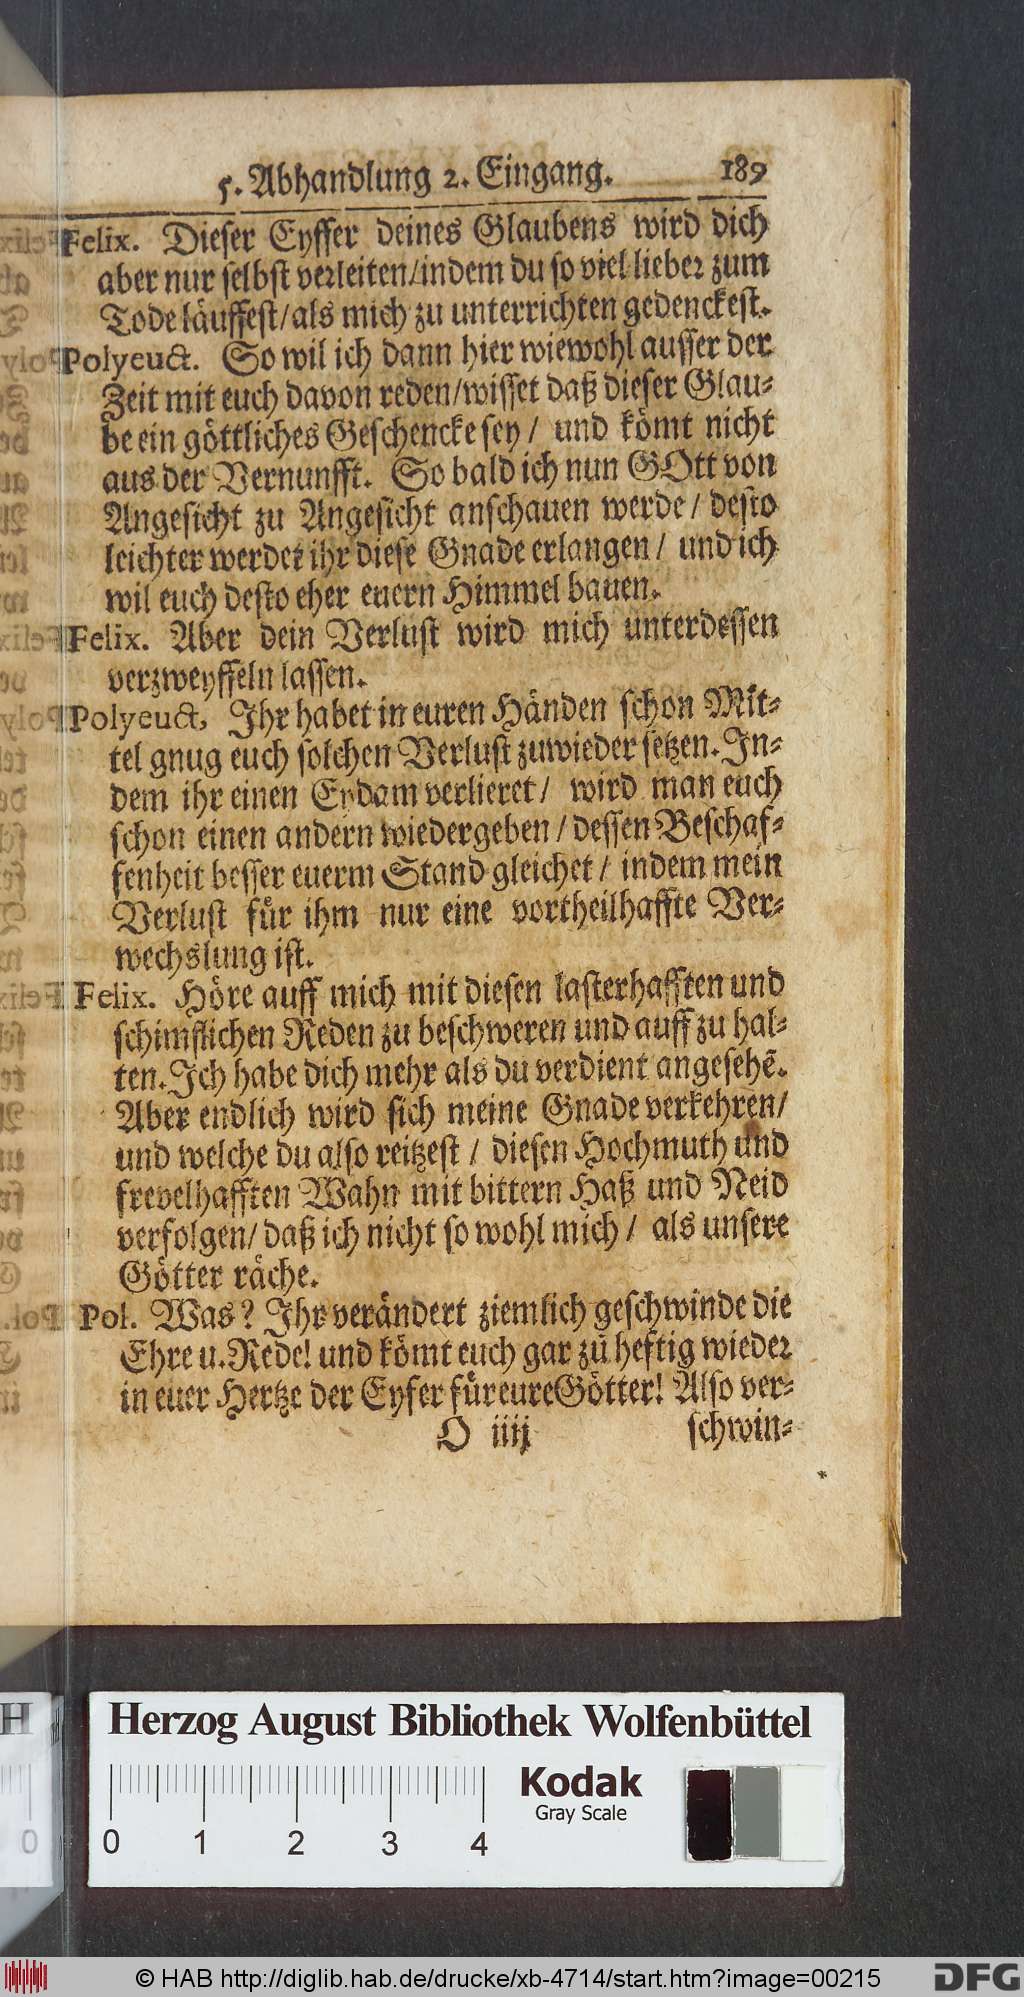 5. Abhandlung 2. Eingang. 189
Felix. Dieser Eyffer deines Glaubens wird dich
aber nur selbst verleiten/indem du so viel lieber zum
Tode läuffest/als mich zu unterrichten gedenckest.
Polyeuct. So wil ich dann hier wiewohl ausser der
Zeit mit euch davon reden/wisset daß dieser Glau-
be ein göttliches Geschencke sey/ und kömt nicht
aus der Vernunfft. So bald ich nun GOtt von
Angesicht zu Angesicht anschauen werde/ desto
leichter werdet ihr diese Gnade erlangen/ und ich
wil euch desto eher euern Himmel bauen.
Felix. Aber dein Verlust wird mich unterdessen
verzweyffeln lassen.
Polyeuct, Ihr habet in euren Händen schon Mit-
tel gnug euch solchen Verlust zuwieder setzen. In-
dem ihr einen Eydam verlieret/ wird man euch
schon einen andern wiedergeben/dessen Beschaf-
fenheit besser euerm Stand gleichet/ indem mein
Verlust für ihm nur eine vortheilhaffte Ver-
wechslung ist.
Felix. Höre auff mich mit diesen lasterhafften und
schimflichen Reden zu beschweren und auff zu hal-
ten. Ich habe dich mehr als du verdient angesehẽ.
Aber endlich wird sich meine Gnade verkehren/
und welche du also reitzest/ diesen Hochmuth und
frevelhafften Wahn mit bittern Haß und Neid
verfolgen/daß ich nicht so wohl mich/ als unsere
Götter räche.
Pol. Was? Ihr verändert ziemlich geschwinde die
Ehre u. Rede! und kömt euch gar zu heftig wieder
in euer Hertze der Eyfer für eure Götter! Also ver-
O iiij schwin-
Herzog August Bibliothek Wolfenbüttel
Kodak
Gray Scale
0 1 2 3 4
H
0
© HAB http://diglib.hab.de/drucke/xb-4714/start.htm?image=00215
DFG